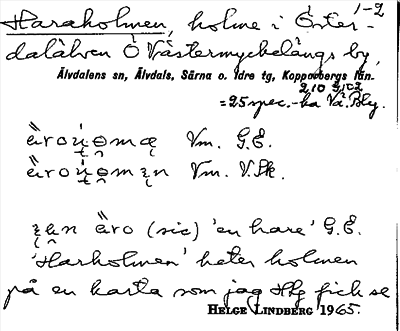 1-2
Haraholmen, holme i Öster-
dalälven Ö Västermyckelängs by,
Älvdalens sn, Älvdals, Särna o. Idre tg, Kopparbergs län.
210 2102
=25spec.-ka Vä. Bly.
Vm. G.E.
Vm. V.Sk.
(sic) 'en hare' G.E.
'Harholmen' heter holmen
på en karta som jag Hlg fick se
HELGE LINDBERG 1965.